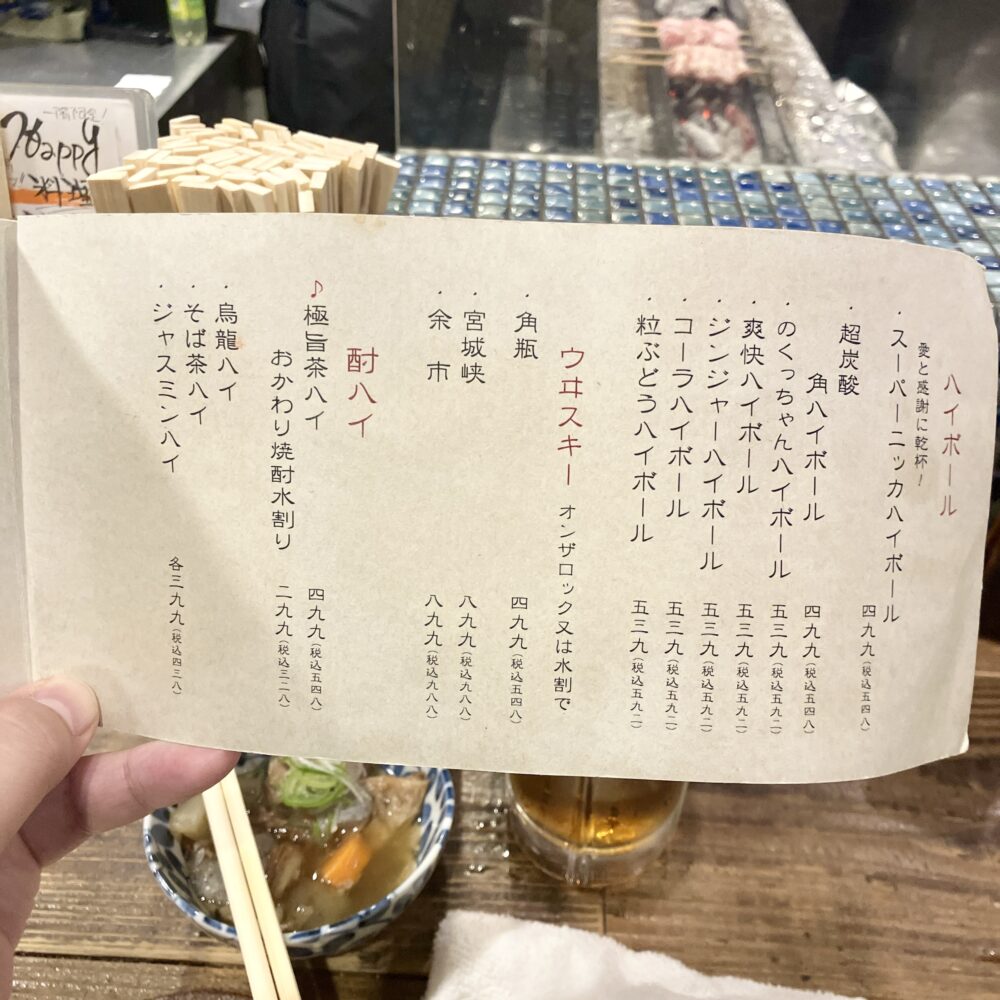 ハイボール
愛と感謝に乾杯!
・スーパーニッカハイボール
四九九(税込五四八)
・超炭酸
角ハイボール
四九九(税込五四八)
・のくっちゃんハイボール
五三九(税込五九二)
・爽快ハイボール
五三九(税込五九二)
・ジンジャーハイボール
五三九(税込五九二)
・コーラハイボール
五三九(税込五九二)
・粒ぶどうハイボール
五三九(税込五九二)
ウヰスキー オンザロック又は水割で
・角瓶
四九九(税込五四八)
・宮城峡
八九九(税込九八八)
・余市
八九九(税込九八八)
酎ハイ
♪極旨茶ハイ
四九九(税込五四八)
おかわり焼酎水割り
二九九(税込三二八)
・烏龍ハイ
・そば茶ハイ
・ジャスミンハイ
各三九九(税込四三八)
Happy